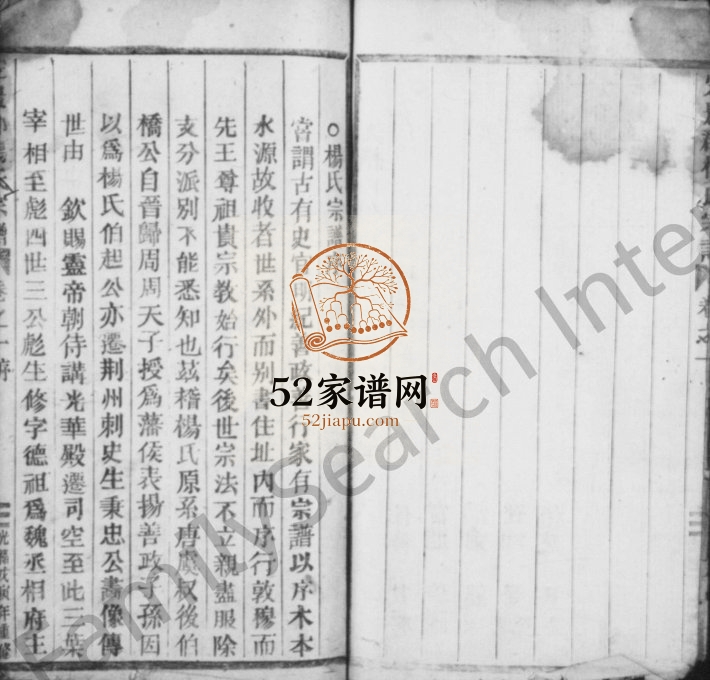 楊氏宗譜
嘗謂古有史官 紀善政 行家有宗譜以序木本
水源故收者世系外而別書住址內而序行敦穆而
先王尊祖貴宗教始行矣後世宗法不立親盡服除
支分派別不能悉知也茲稽楊氏原系唐虞叔後伯
橋公自晉歸周周天子授爲藩侯表揚善政子孫因
以爲楊氏伯起公亦遷荆州刺史生秉忠公畵像傳
世由 欽賜靈帝朝侍講光華殿遷司空至此三葉
宰相至彪四世三公彪生修字德祖爲魏丞相府主
卷之一序
年重修
52家谱网
52jiapu.com
FamilySearch Inter